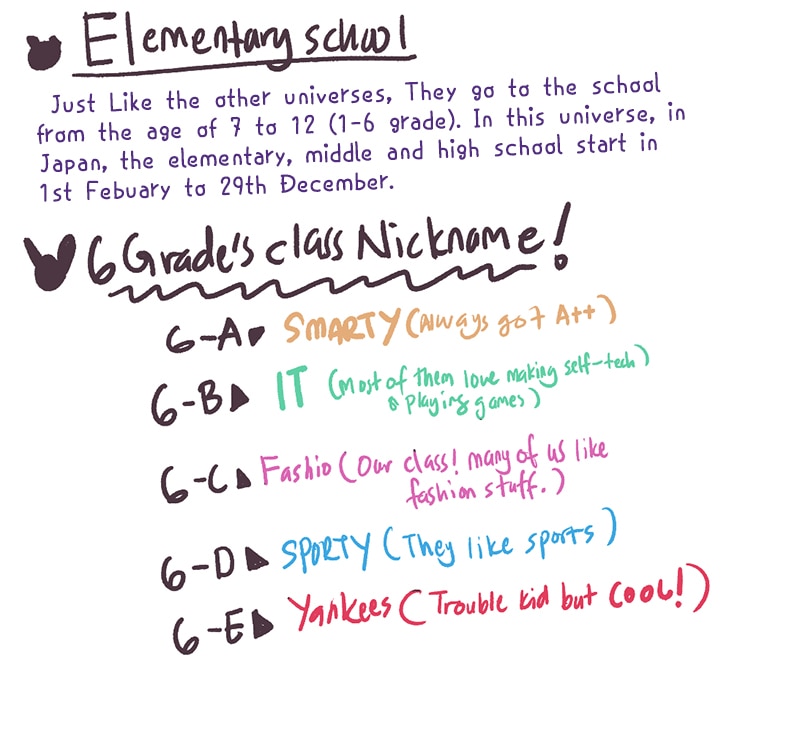 Elementary school
Just Like the other universes, They go to the school
from the age of 7 to 12 (1-6 grade). In this universe, in
Japan, the elementary, middle and high school start in
1st Febuary to 29th December.
6 Grade's class Nickname!
6-A SMARTY (Always got A++)
6-B IT (Most of them love making self-tech
& playing games)
6-C Fashio (Our class! many of us like
fashion stuff.)
6-D SPORTY (They like sports)
6-E Yankees (Trouble kid but COOL!)